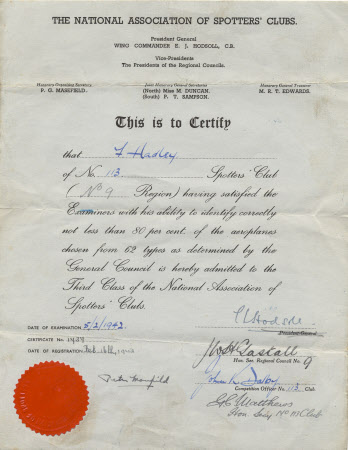 THE NATIONAL ASSOCIATION OF SPOTTERS' CLUBS.
President General
WING COMMANDER E. J. HODSOLL, C.B.
Vice-Presidents
The Presidents of the Regional Councils.
Honorary Organising Secretary
P. G. MASEFIELD.
Joint Honorary General Secretaries
(North) Miss M. DUNCAN.
(South) P. T. SAMPSON.
Honorary General Treasurer
M. R. T. EDWARDS.
This is to Certify
that F. Hadley
of No. 113 Spotters' Club
( No 9 Region) having satisfied the
Examiners with his ability to identify correctly
not less than 80 per cent. of the aeroplanes
chosen from 62 types as determined by the
General Council is hereby admitted to the
Third Class of the National Association of
Spotters' Clubs.
EJHodsoll
President General
DATE OF EXAMINATION 5/2/1943.
Gaskall
Hon. Sec. Regional Council No. 9
CERTIFICATE No.
DATE OF REGISTRATION Feb. 16th, 1943
Peter Masefield
Competition Officer No. 113 Club
Matthews
Hon. Secy No 113 Club